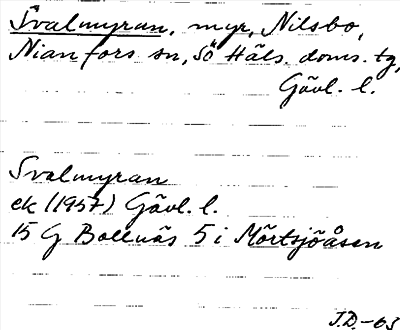 Svalmyran, myr, Nilsbo,
Nianfors sn, Sö Häls. doms. tg,
Gävl. l.
Svalmyran
ek (1957) Gävl. l.
15 G Bollnäs 5 i Mörtsjöåsen
J.D.-63